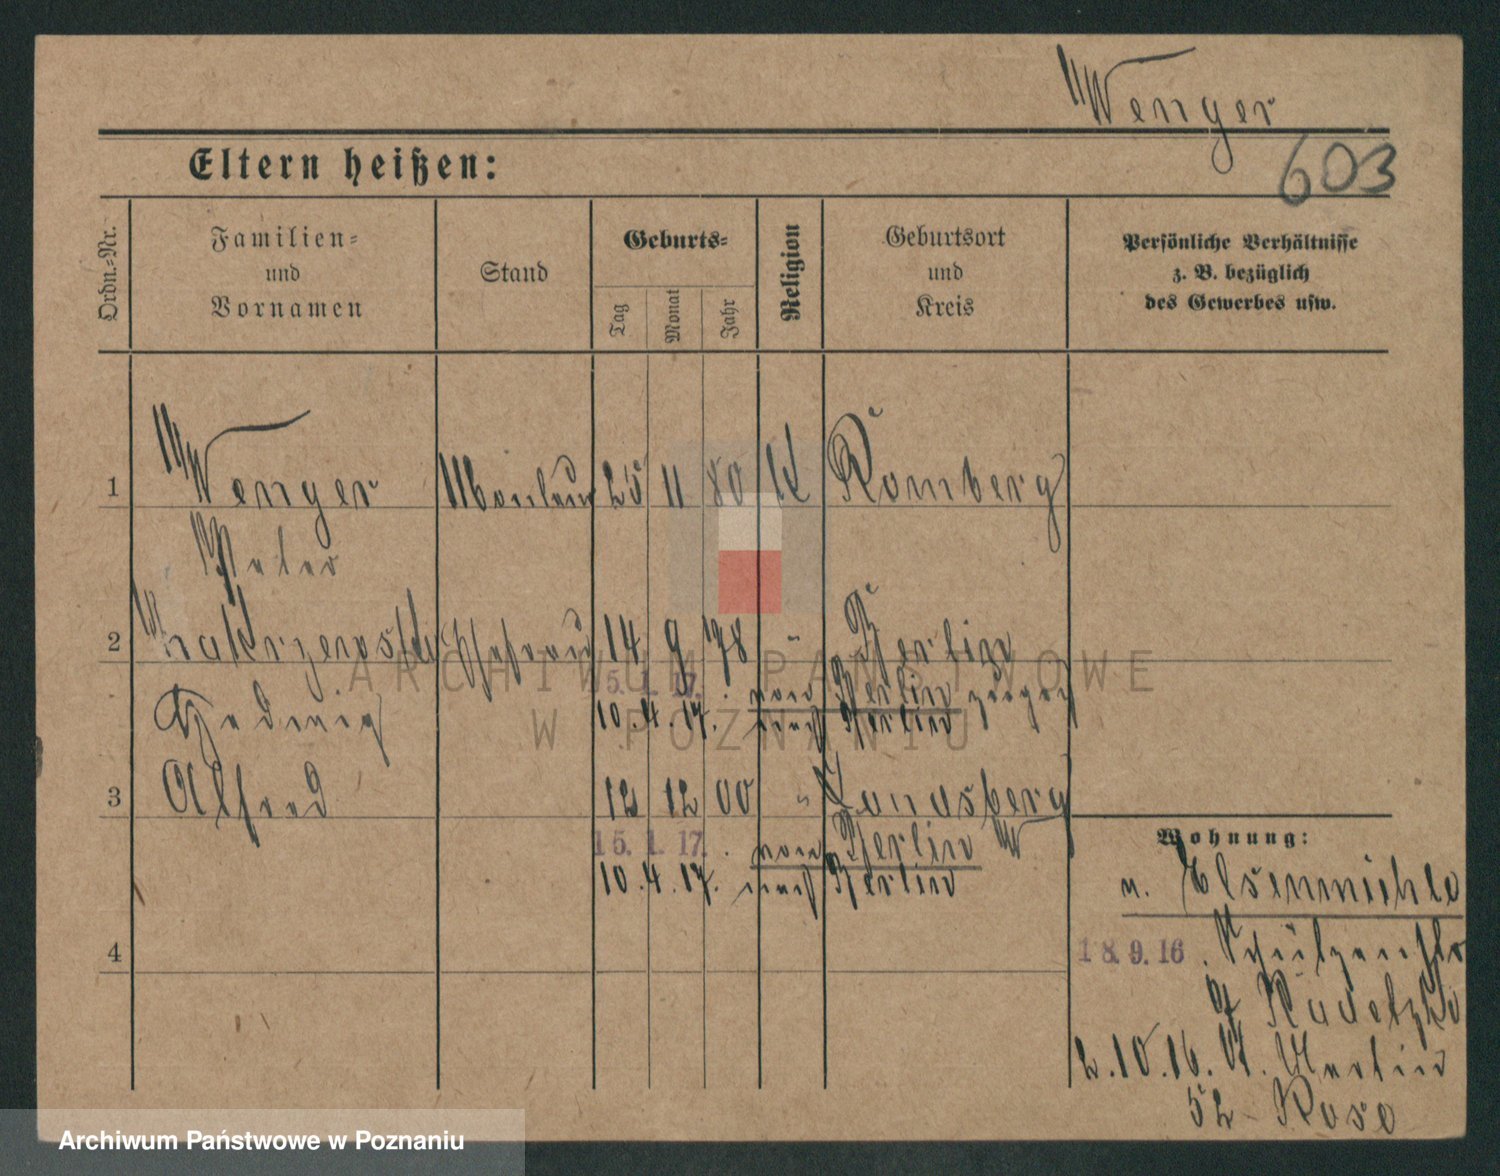 Wenger
603
Eltern heißen:
Ordn.-Nr.
Familien-
und
Vornamen
Stand
Geburts-
Tag
Monat
Jahr
Religion
Geburtsort
und
Kreis
Persönliche Verhältnisse
z. B. bezüglich
des Gewerbes usw.
1 Wenger 25 11 80 K Romberg
Peter
2 14 9 78 " Berlin
5. 1. 17. von Berlin
Hedwig 10. 4. 17. nach Berlin
3 Alfred 12 12 00 " Landsberg W
15. 1. 17. von Berlin
10. 4. 17. nach Berlin
4
Wohnung:
n. Elsenmühle
18. 9. 16
2. 10. 16. St. Martin
52 Rose
ARCHIWUM PAŃSTWOWE
W POZNANIU
Archiwum Państwowe w Poznaniu